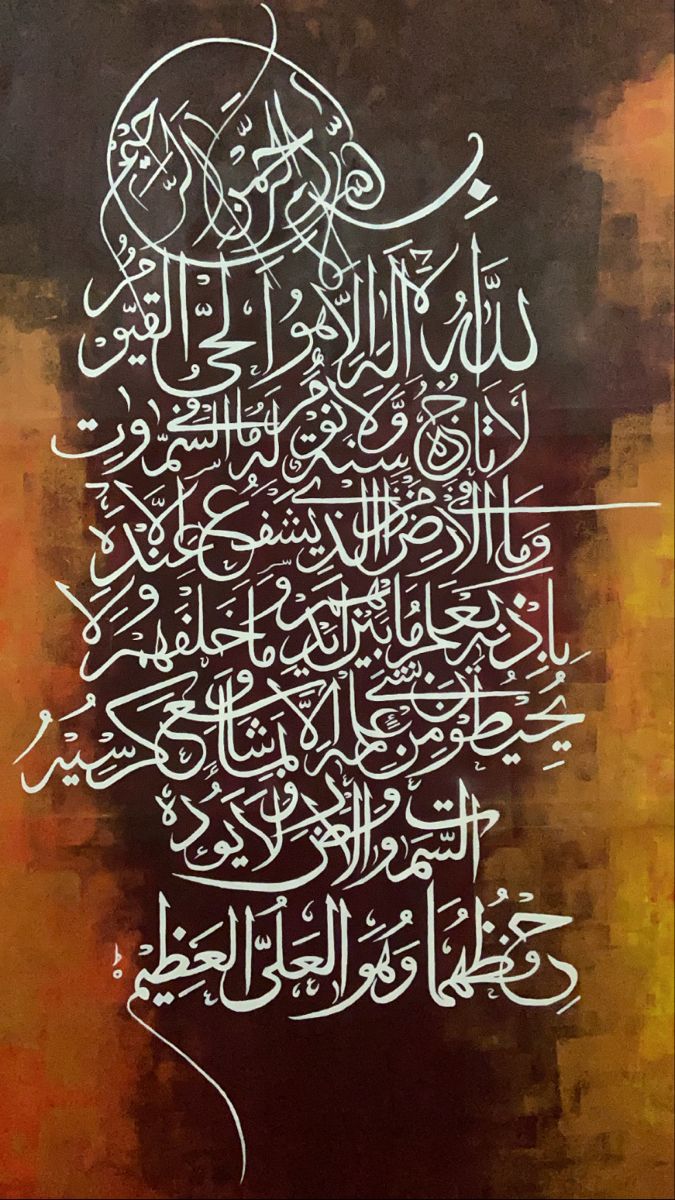 بسم الله الرحمن الرحيم
اللَّهُ لَا إِلَهَ إِلَّا هُوَ الْحَيُّ الْقَيُّومُ
لَا تَأْخُذُهُ سِنَةٌ وَّلَا نَوْمٌ لَهُ مَا فِي السَّمٰوٰتِ
وَمَا فِي الْأَرْضِ مَن ذَا الَّذِي يَشْفَعُ عِنْدَهُ إِلَّا
بِإِذْنِهِ يَعْلَمُ مَا بَيْنَ أَيْدِيهِمْ وَمَا خَلْفَهُمْ وَلَا
يُحِيطُونَ بِشَيْءٍ مِّنْ عِلْمِهِ إِلَّا بِمَا شَاءَ وَسِعَ كُرْسِيُّهُ
السَّمٰوٰتِ وَالْأَرْضَ وَلَا يَئُودُهُ
حِفْظُهُمَا وَهُوَ الْعَلِيُّ الْعَظِيمُ